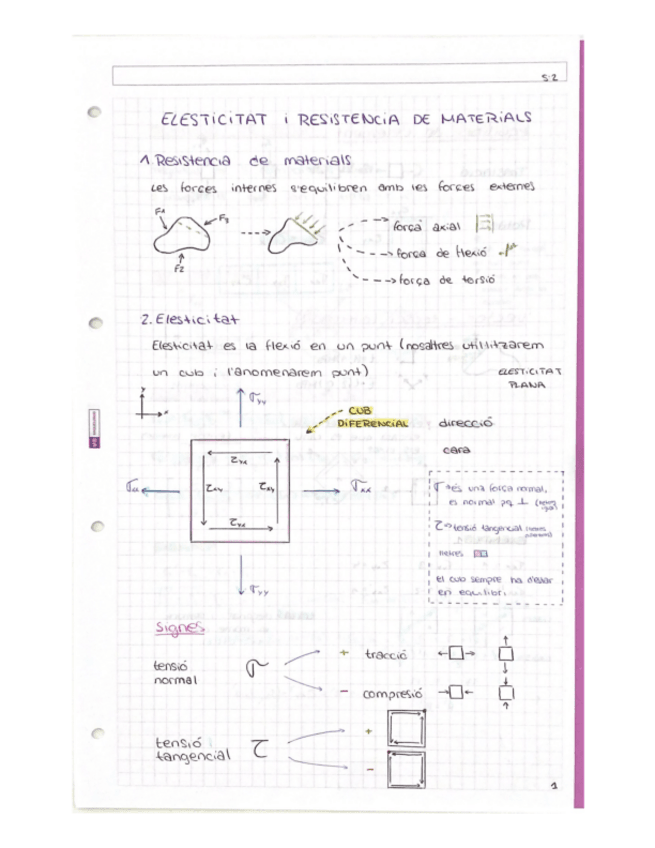 S.2
ELESTICITAT i RESISTENCIA DE MATERIALS
1. Resistencia de materials
Les forces internes s'equilibren amb les forces externes
F1
F3
F2
força axial
força de flexió
força de torsió
2. Elesticitat
Elesticitat es la flexió en un punt (nosaltres utilitzarem
un cub i l'anomenarem punt)
ELESTICITAT
PLANA
y
x
σyy
CUB
DIFERENCIAL
direcció
cara
τyx
σx
τxy
τxy
σxx
τyx
σyy
σ és una força normal,
es normal pq ⊥
τ => torsió tangencial
el cub sempre ha d'estar
en equilibri
Signes
tensió
normal
σ
+ tracció
- compresió
tensió
tangencial
τ
+
-
1